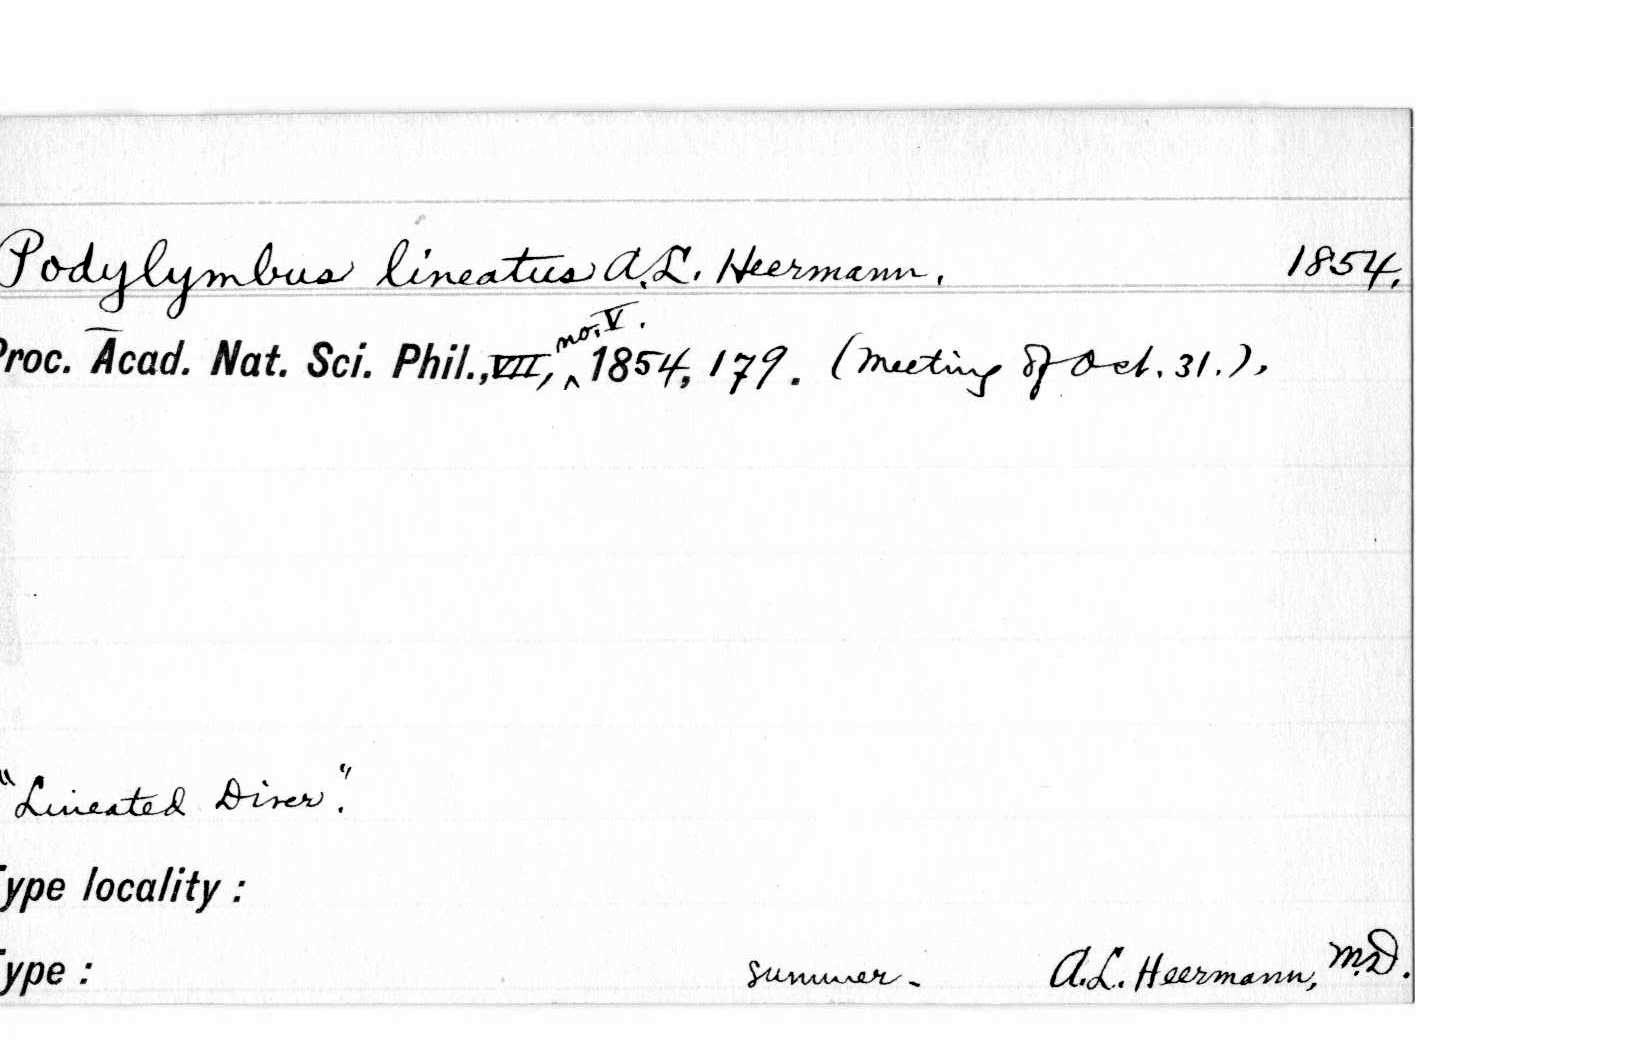 Podylymbus lineatus A.L. Heermann. 1854.
Proc. Acad. Nat. Sci. Phil., VII, no. V. 1854, 179. (Meeting of Oct. 31.).
"Lineated Diver."
Type locality :
Type : summer. A.L. Heermann, M.D.